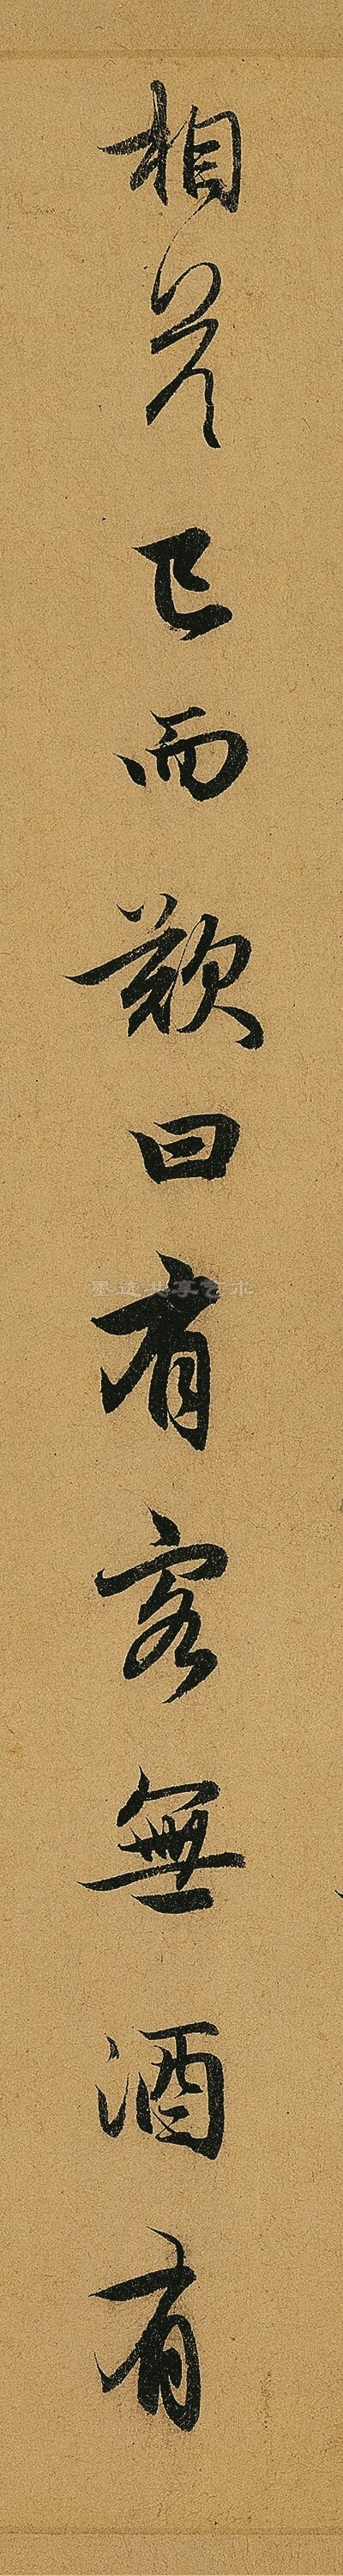 相答已而歎曰有客無酒有
墨迹共享艺术